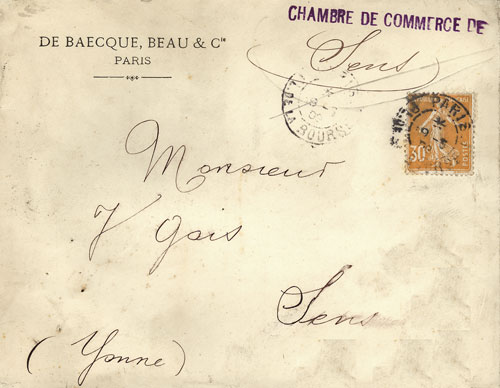 CHAMBRE DE COMMERCE DE
Sens
DE BAECQUE, BEAU & Cie
PARIS
BOURSE
PARIS
30c
Monsieur
V Gois
Sens
(Yonne)